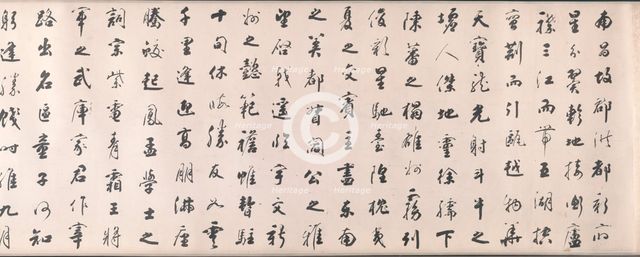 南昌故郡洪都新府
星分翼軫地接衡廬
襟三江而帶五湖控
蠻荊而引甌越物華
天寶龍光射斗牛之
墟人傑地靈徐孺下
陳蕃之榻雄州霧列
俊彩星馳臺隍枕夷
夏之交賓主盡東南
之美都督閻公之雅
望棨戟遙臨宇文新
州之懿範襜帷暫駐
十旬休暇勝友如雲
千里逢迎高朋滿座
騰蛟起鳳孟學士之
詞宗紫電青霜王將
軍之武庫家君作宰
路出名區童子何知
躬逢勝餞時維九月
Heritage
Heritage
Heritage
Heritage
Heritage